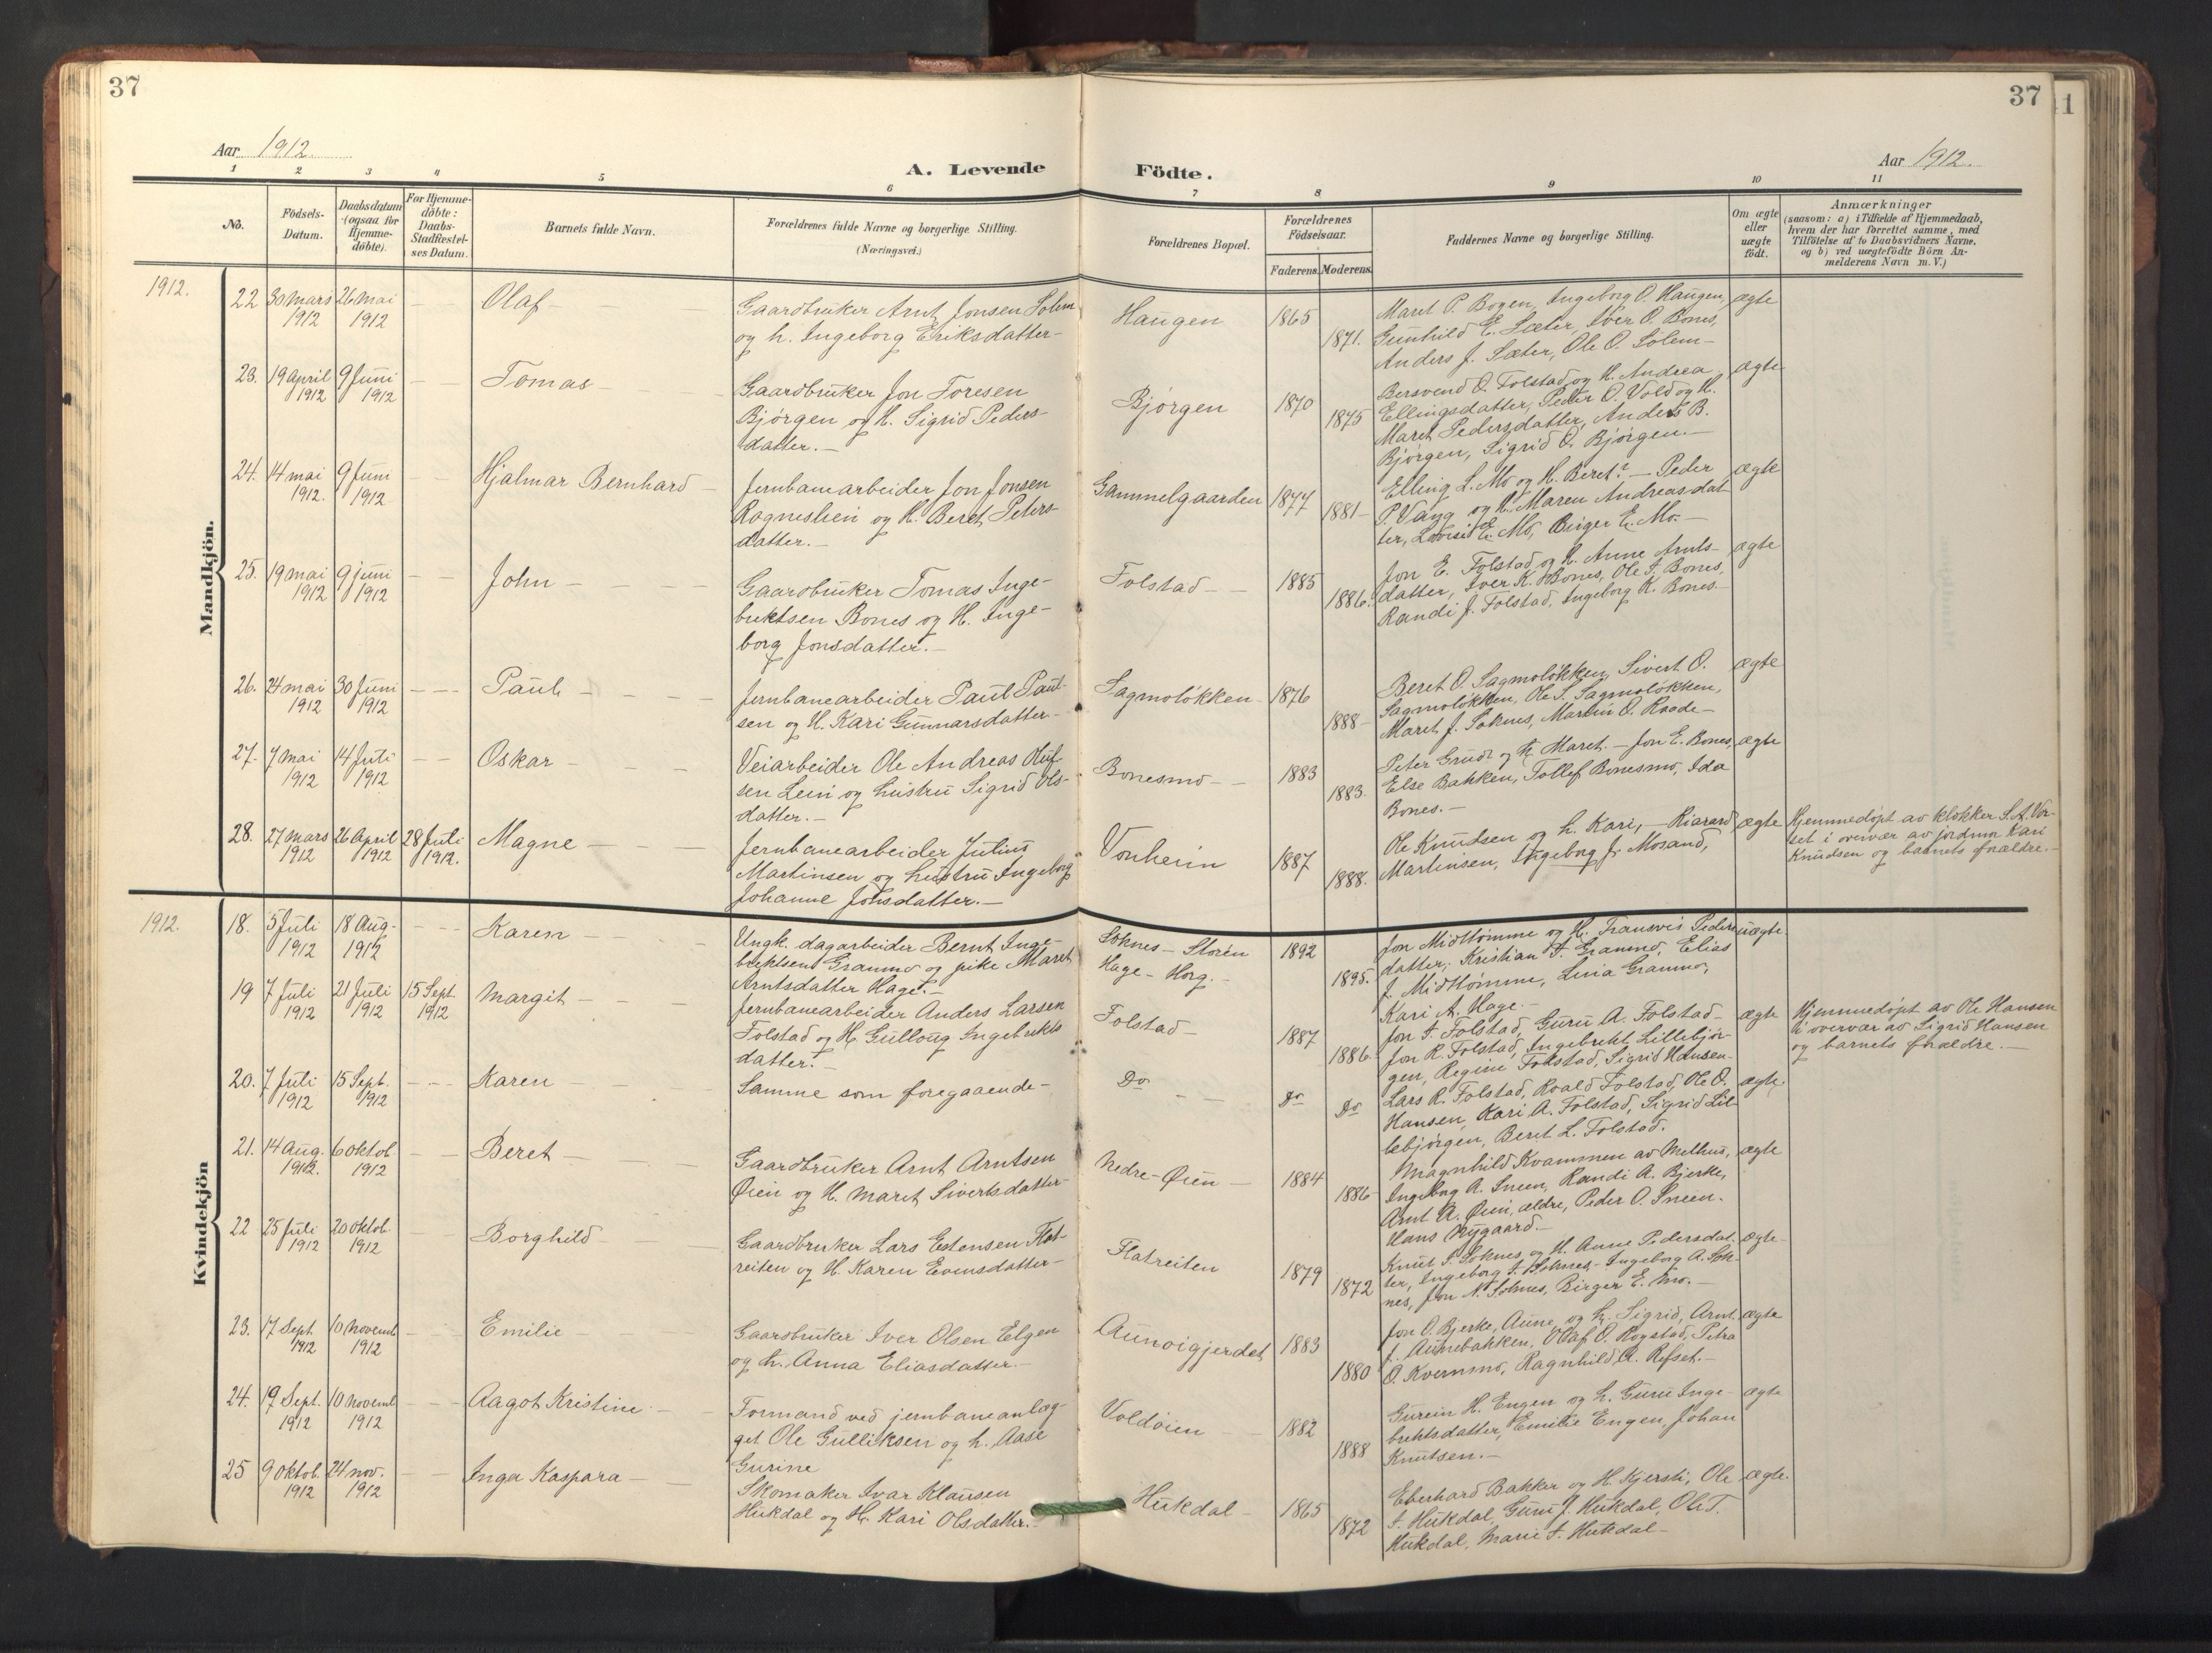 37
37
41
Aar 1912.
A. Levende Födte.
Aar 1912.
1 2 3 4 5 6 7 8 9 10 11
No.
Födsels-
Datum.
Daabsdatum
(ogsaa for
Hjemme-
döbte).
For Hjemme-
döbte:
Daabs-
Stadfæstel-
ses Datum.
Barnets fulde Navn.
Forældrenes fulde Navne og borgerlige Stilling.
(Næringsvei.)
Forældrenes Bopæl.
Forældrenes
Födselsaar.
Faderens. Moderens.
Faddernes Navne og borgerlige Stilling.
Om ægte
eller
uægte
födt.
Anmærkninger
(saasom: a) i Tilfælde af Hjemmedaab,
hvem der har forrettet samme, med
Tilföielse af to Daabsvidners Navne,
og b) ved uægtefödte Börn An-
melderens Navn m. V.)
Mandkjön.
1912.
22 30 mars 1912 26 mai 1912 Olaf
Gaardbruker Arnt Jonsen Solem
og h. Ingeborg Eriksdatter-
Haugen 1865 1871.
Maret P. Bogen, Ingeborg O. Haugen,
Gunhild E. Sæter, Iver O. Bones,
Anders J. Sæter, Ole O. Solem-
ægte
23. 19 April 1912 9 Juni 1912 Tomas
Gaardbruker Jon Toresen
Bjørgen og H. Sigrid Peders-
datter.-
Bjørgen 1870 1875
Bersvend O. Folstad og H. Andrea
Ellingsdatter, Peder O. Vold og H.
Maret Pedersdatter, Anders B.
Bjørgen, Sigrid O. Bjørgen.-
ægte
24. 14 mai 1912. 9 Juni 1912 Hjalmar Bernhard
Jernbanearbeider Jon Jonsen
Rogneslien og H. Beret Peters-
datter.-
Gammelgaarden 1877 1881-
Elling L. Mo og H. Beret? - Peder
P. Vang og H. Maren Andreasdat-
ter, Lovise E. Mo, Birger E. Mo.-
ægte
25. 19 mai 1912 9 juni 1912 John
Gaardbruker Tomas Inge-
briktsen Bones og H. Inge-
borg Jonsdatter.-
Folstad 1885 1886.
Jon E. Folstad og H. Anne Arnts-
datter, Iver K. Bones, Ole I. Bones,
Randi J. Folstad, Ingeborg K. Bones.-
ægte
26. 24 mai 1912 30 Juni 1912 Paul
Jernbanearbeider Paul Paul-
sen og H. Kari Gunnarsdatter-
Sagmoløkken- 1876 1888-
Beret O. Sagmoløkken, Sivert O.
Sagmoløkken, Ole S. Sagmoløkken,
Maret J. Soknes, Martin O. Raade-
ægte
27. 7 mai 1912 14 Juli 1912 Oskar
Veiarbeider Ole Andreas
sen Lein og hustru Sigrid Ols-
datter.-
Bonesmo 1883 1883.
Peter Grudt og h. Maret.- Jon E. Bones,
Else Bakken, Tollef Bonesmo, Ida
Bones.-
ægte
28. 27 mars 1912 26 April 1912 28 Juli 1912. Magne
Jernbanearbeider Julius
Martinsen og hustru Ingeborg
Johanne Johsdatter.-
Vonheim 1887 1888.
Ole Knudsen og h. Kari,- Rikard
Martinsen, Ingeborg J. Mosand,
ægte
Hjemmedøpt av klokker S. A. Vor-
set i overvær av jordmor Kari
Knudsen og barnets forældre.-
Kvindekjön
1912.
18. 5 Juli 1912 18 Aug. 1912 Karen
Ungk. dagarbeider Bernt Inge-
briktsen Gramno og pike Maret
Arntsdatter Hage.-
Soknes - Støren
Hage - Horg.-
1892 1895.
Jon Midttømme og H. Peders-
datter, Kristian I. Gramno, Elias
J. Midttømme, Lina Gramno,
Kari A. Hage.-
uægte.
19 7 Juli 1912 21 Juli 1912 15 Sept. 1912 Margit
Jernbanearbeider Anders Larsen
Folstad og H. Gullaug Ingebrikts
datter.-
Folstad- 1887 1886.
Jon I. Folstad, Guru A. Folstad-
Jon R. Folstad, Ingebrikt Lillebjør-
gen, Regine Folstad, Sigrid Hansen-
ægte
Hjemmedøpt av Ole Hansen
i overvær av Sigrid Hansen
og barnets forældre.-
20. 7 Juli 1912 15 Sept. 1912 Karen
Samme som foregaaende-
Do Do Do
Lars R. Folstad, Roald Folstad, Ole O.
Hansen, Kari A. Folstad, Sigrid Lil-
lebjørgen, Beret L. Folstad.
ægte.
21. 14 Aug. 1912. 6 oktob 1912 Beret
Gaardbruker Arnt Arntsen
Øien og H. Maret Sivertsdatter-
Nedre-Øien- 1884 1886-
Magnhild Kvammen av Melhus,
Ingeborg A. Sneen, Randi A. Bjerke,
Arnt A. Øien, ældre, Peder O. Sneen.
Hans Nygaard.-
ægte
22 25 Juli 1912 20 oktob. 1912 Borghild
Gaardbruker Lars Estensen Flat-
reiten og H. Karen Evensdatter-
Flatreiten 1879 1872
Knut S. Soknes og H. Anne Pedersdat-
ter, Ingeborg I. Soknes- Ingeborg A. Sok-
nes, Jon N. Soknes, Birger E. Mo.-
ægte-
23. 17 Sept. 1912 10 Novemb 1912 Emilie
Gaardbruker Iver Olsen Elgen
og h. Anna Eliasdatter.-
Aunøigjerdet 1883 1880
Jon O. Bjerke, Aune, og h. Sigrid, Arnt
J. Aunebakken, Olaf O. Rogstad, Petra
O. Kvernmo, Ragnhild A. Refset.-
ægte
24. 19 Sept. 1912 10 Novemb 1912 Aagot Kristine
Formand ved jernbaneanlæg-
get Ole Gulliksen og h. Aase
Gurine
Voldøien 1882 1888
Gurein H. Engen og h. Guru Inge-
briktsdatter, Emilie Engen, Johan
Knutsen.-
ægte
25 9 Oktob. 1912 24 nov. 1912 Inga Kaspara
Skomaker Ivar Klausen
Hukdal og H. Kari Olsdatter.-
Hukdal- 1865 1872
Eberhard Bakker og H. Kjersti, Ole
I. Hukdal, Guru J. Hukdal, Ole T.
Hukdal, Marie I. Hukdal-
ægte.